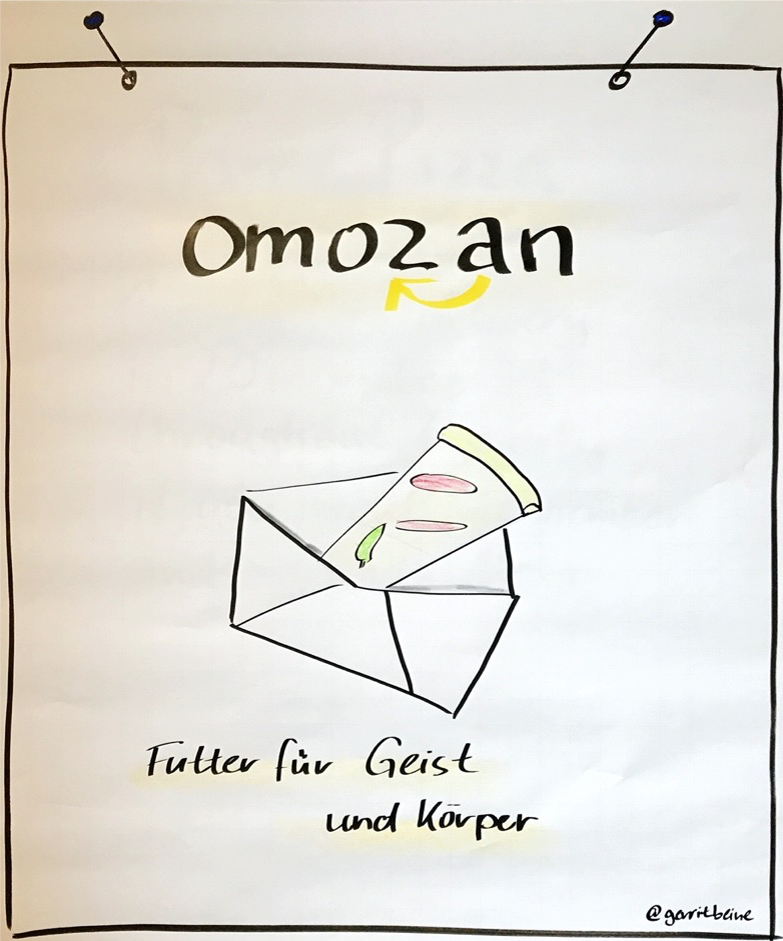 Omozan
Futter für Geist
und Körper
@garritbeine